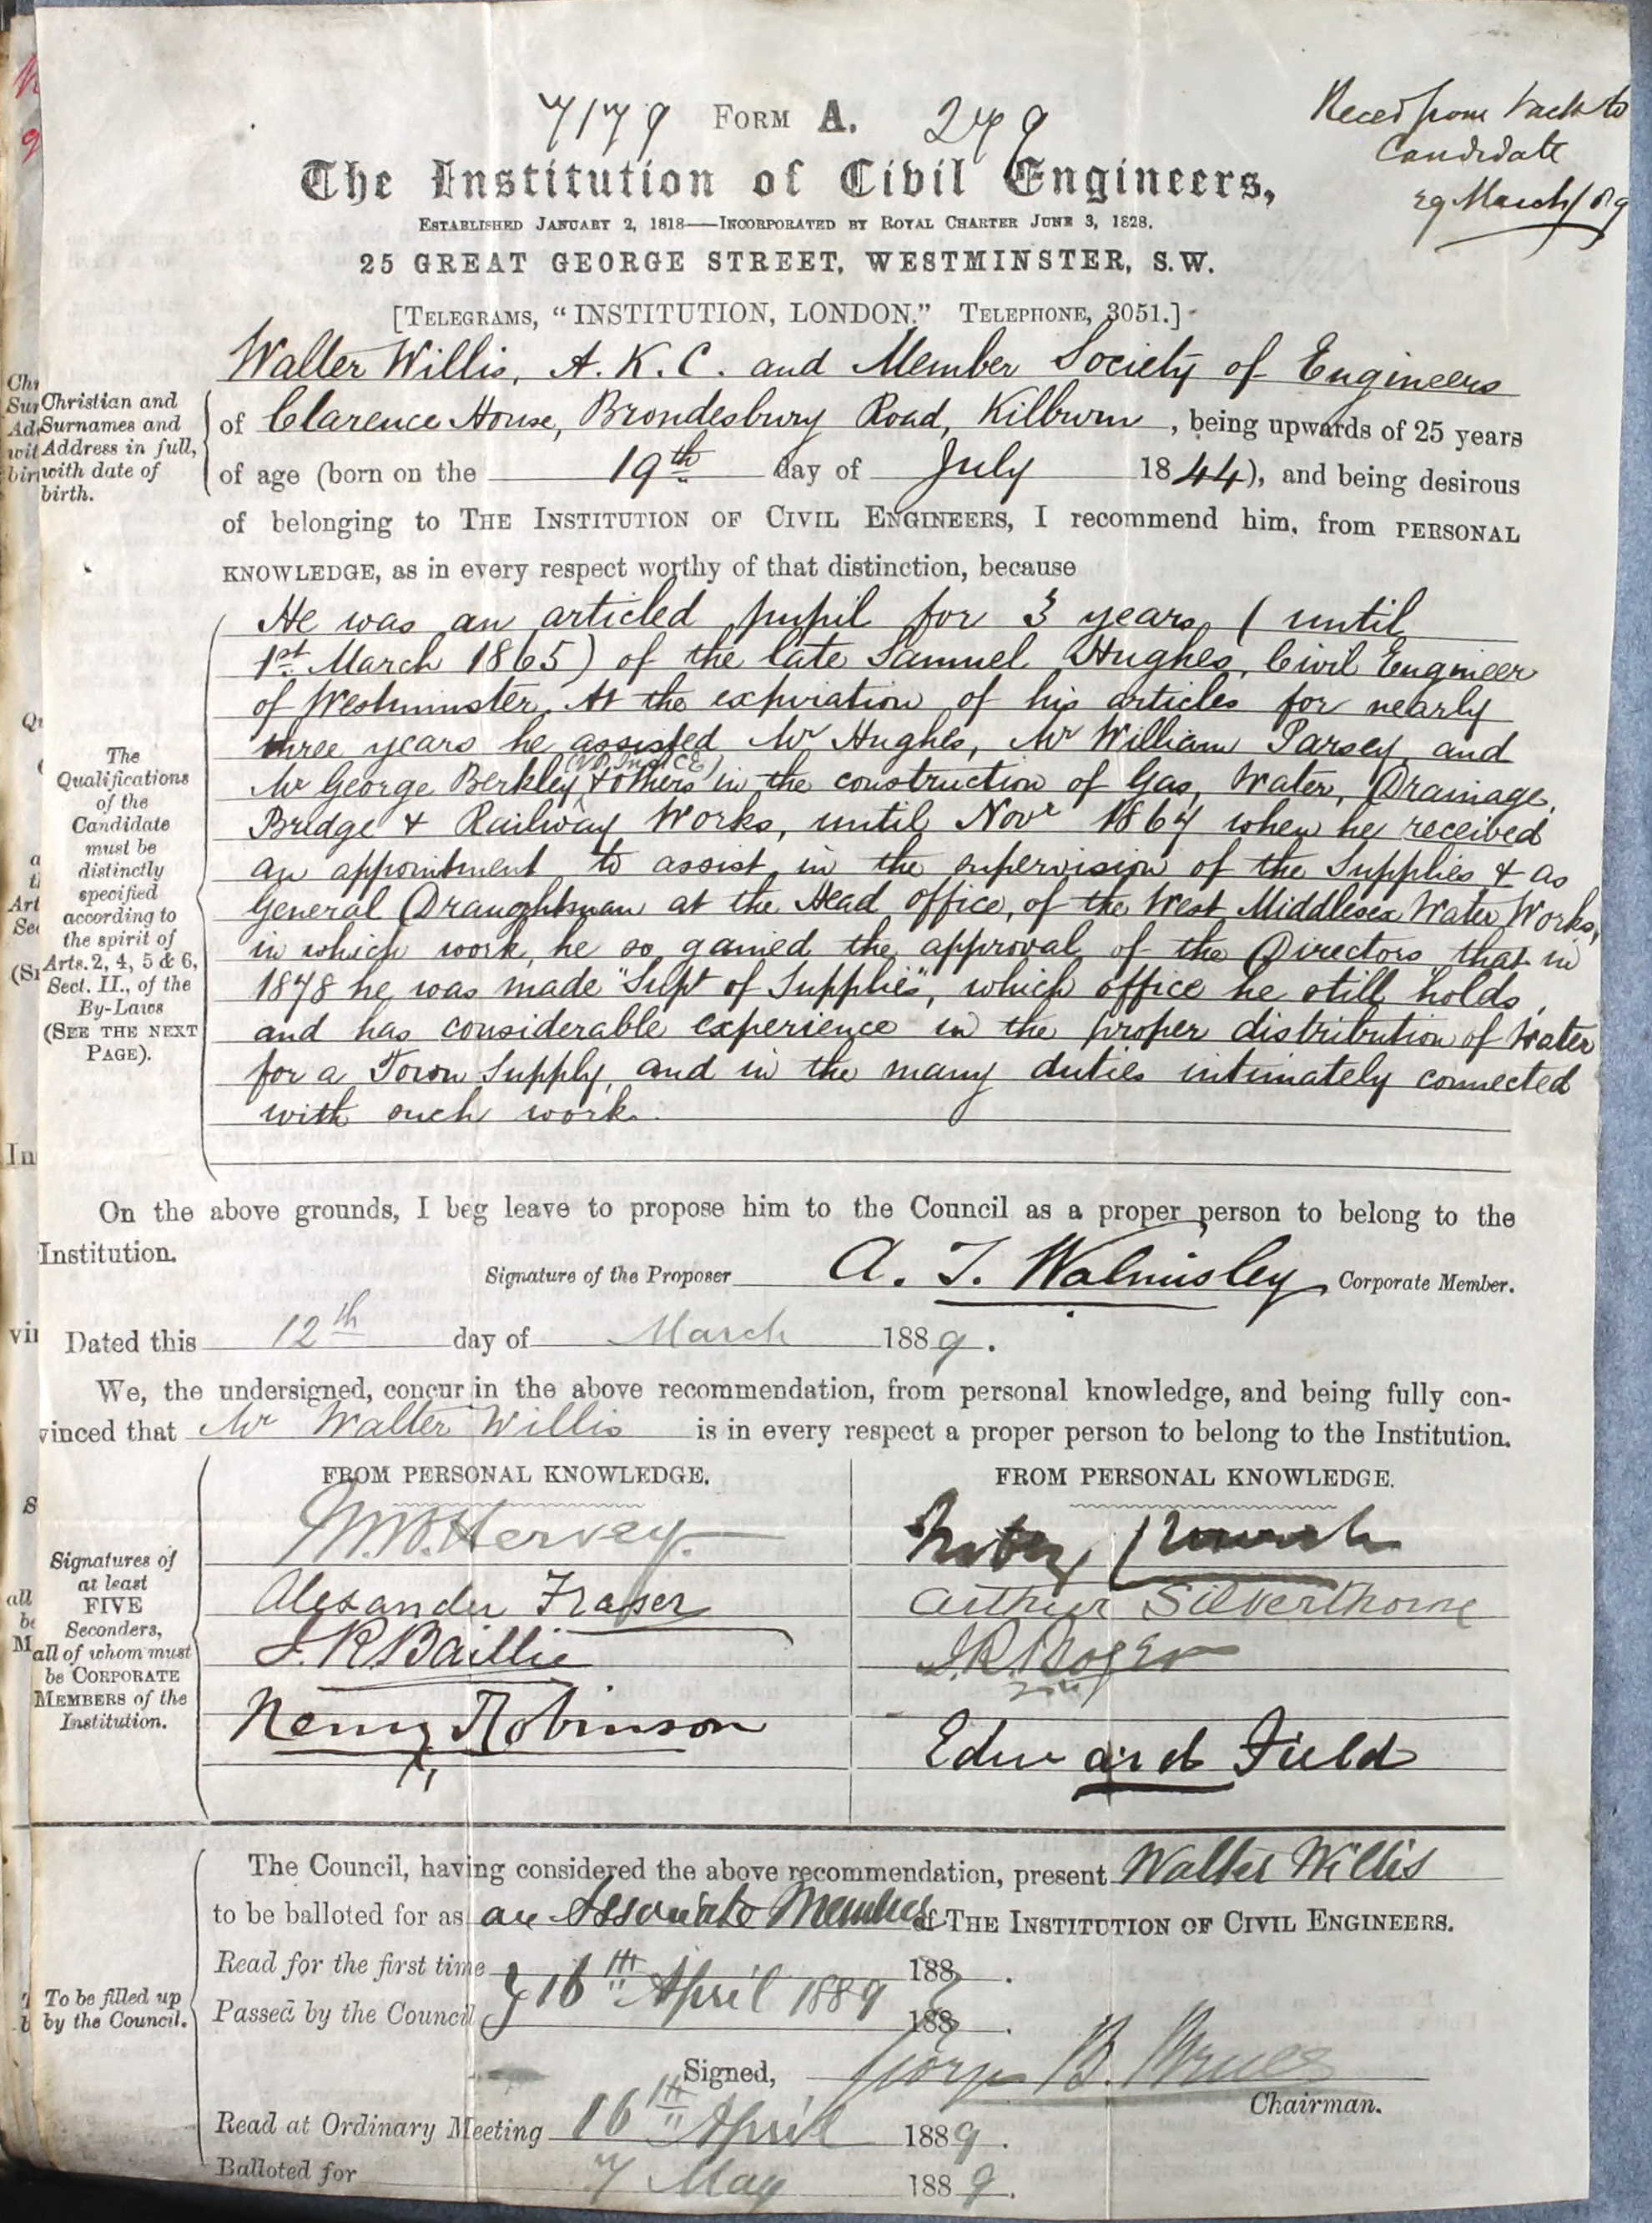 7179 FORM A. 279
Reced from
Candidate
29 March/89
The Institution of Civil Engineers,
ESTABLISHED JANUARY 2, 1818—INCORPORATED BY ROYAL CHARTER JUNE 3, 1828.
25 GREAT GEORGE STREET, WESTMINSTER, S.W.
[TELEGRAMS, "INSTITUTION, LONDON." TELEPHONE, 3051.]
Walter Willis, A. K. C. and Member Society of Engineers
Christian and
Surnames and
Address in full,
with date of
birth.
of Clarence House, Brondesbury Road, Kilburn, being upwards of 25 years
of age (born on the 19th day of July 1844), and being desirous
of belonging to THE INSTITUTION OF CIVIL ENGINEERS, I recommend him, from PERSONAL
KNOWLEDGE, as in every respect worthy of that distinction, because
The
Qualifications
of the
Candidate
must be
distinctly
specified
according to
the spirit of
Arts. 2, 4, 5 & 6,
Sect. II., of the
By-Laws
(SEE THE NEXT
PAGE).
He was an articled pupil for 3 years (until
1st March 1865) of the late Samuel Hughes, Civil Engineer
of Westminster. At the expiration of his articles for nearly
three years he assisted Mr Hughes, Mr William Parsey, and
Mr George Berkley (V.P. Inst CE) & others in the construction of Gas, Water, Drainage,
Bridge & Railway Works, until Novr 1867 when he received
an appointment to assist in the supervision of the Supplies & as
General Draughtsman at the Head office, of the West Middlesex Water Works,
in which work, he so gained the approval of the Directors that in
1878 he was made "Supt of Supplies", which office he still holds,
and has considerable experience in the proper distribution of Water
for a Town Supply, and in the many duties intimately connected
with such work.
On the above grounds, I beg leave to propose him to the Council as a proper person to belong to the
Institution.
Signature of the Proposer A. T. Walmisley Corporate Member.
Dated this 12th day of March 1889.
We, the undersigned, concur in the above recommendation, from personal knowledge, and being fully con-
vinced that Mr Walter Willis is in every respect a proper person to belong to the Institution.
Signatures of
at least
FIVE
Seconders,
all of whom must
be CORPORATE
MEMBERS of the
Institution.
FROM PERSONAL KNOWLEDGE.
M.W. Hervey.
Alexander Fraser
J. R. Baillie
Henry Robinson
FROM PERSONAL KNOWLEDGE.
Arthur Silverthorne
Edward Field
To be filled up
by the Council.
The Council, having considered the above recommendation, present Walter Willis
to be balloted for as an Associate Member of THE INSTITUTION OF CIVIL ENGINEERS.
Read for the first time 188 .
16th April 1889
Passed by the Council 188 .
Signed, George B. Bruce
Chairman.
Read at Ordinary Meeting 16th April 1889.
Balloted for 7 May 1889.